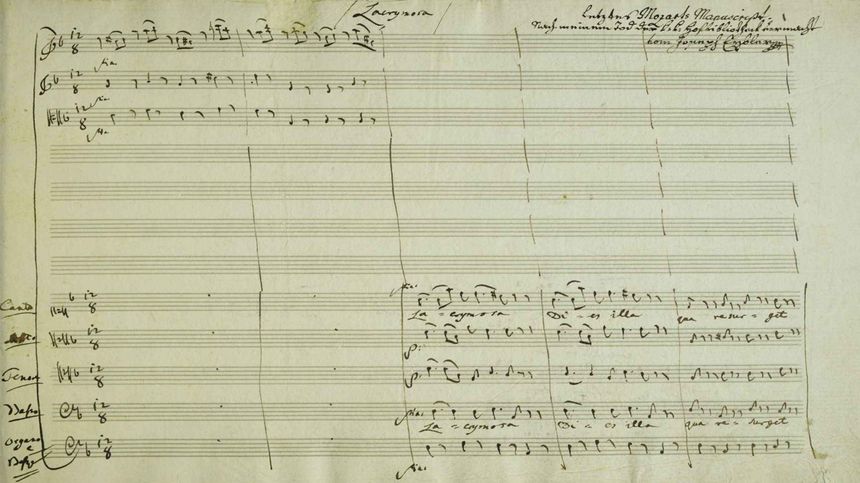 Lacrymosa
Letztes Mozarts Manuscript.
Nach meinem Tod der k:k: Hofbibliothek vermacht
von Joseph Eybler
12
8
pia:
12
8
pia
12
8
pia
Canto
12
8
pia:
La = crymosa Di = es illa qua resur = get
Alto
12
8
p:
Tenore
12
8
p:
Basso
12
8
pia:
La = crymosa Di = es illa qua re = surget
Organo
e
Bassi
12
8
pia: